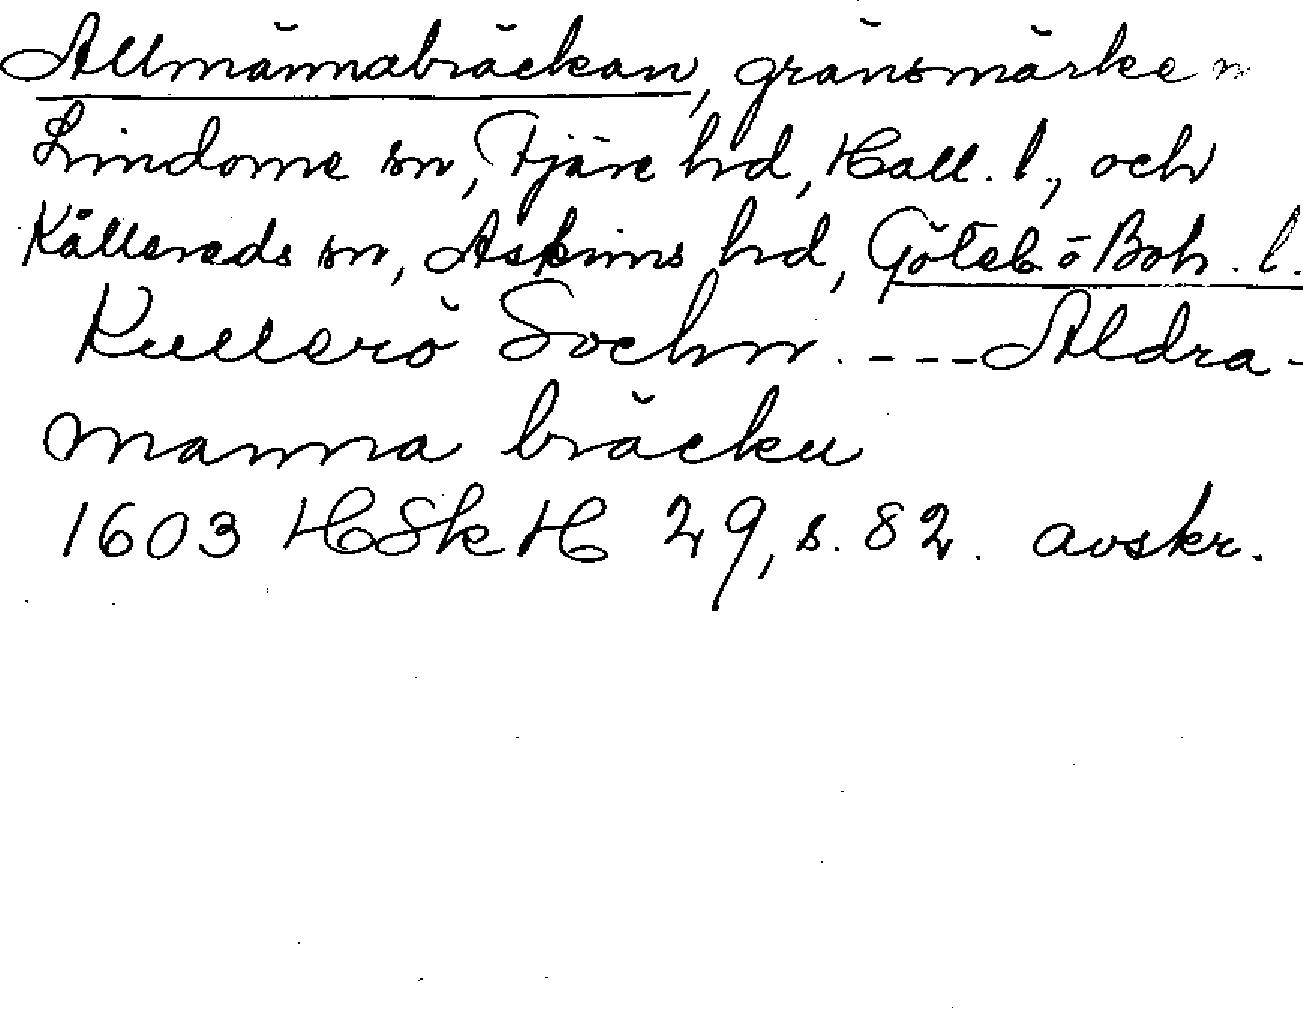 Allmännabräckan, gränsmärke m
Lindome sn, Fjäre hd, Hall. l., och
Kållereds sn, Askims hd, Göteb o Boh. l.
Kullerö Sochn. --- Aldra-
manna bräcku
1603 HSkH 29, s. 82. avskr.